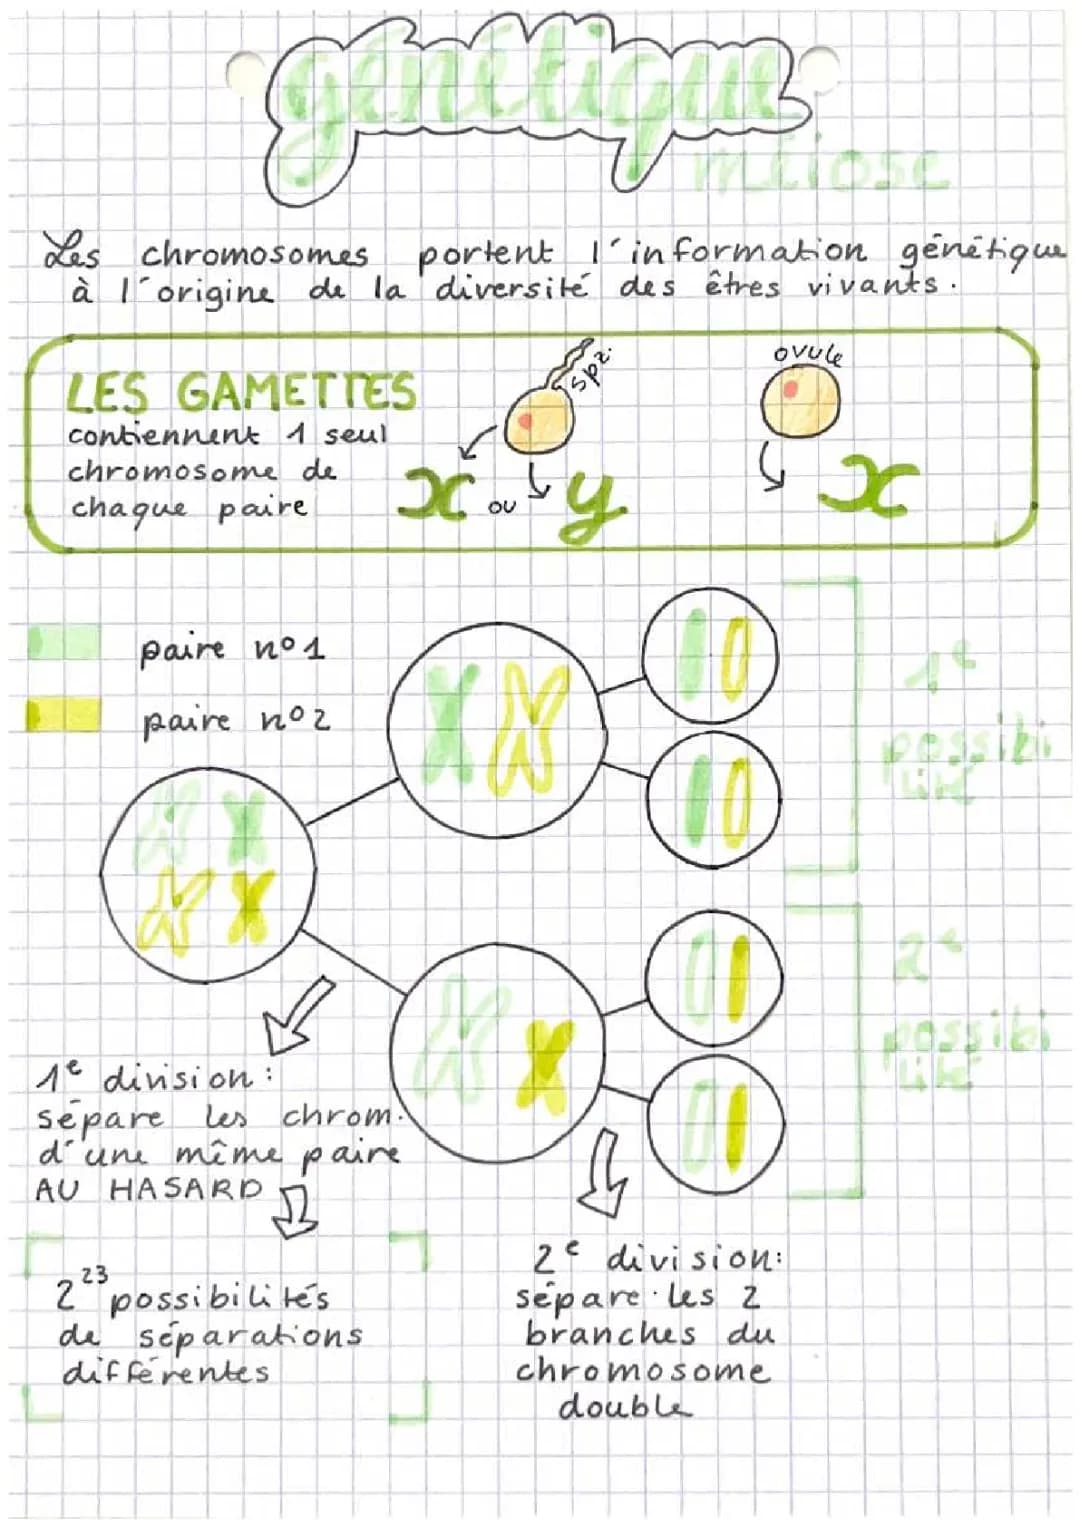 génétique
méiose
Les chromosomes portent l'information génétique
à l'origine de la diversité des êtres vivants.
LES GAMETTES
contiennent 1 seul
chromosome de
chaque paire
spz.
x ou y
ovule
x
paire n°1
paire n°2
1e
possibi
lité
2e
possibi
lité
1e division :
sépare les chrom.
d'une même paire
AU HASARD
2²³ possibilités
de séparations
différentes
2e division:
sépare les 2
branches du
chromosome
double